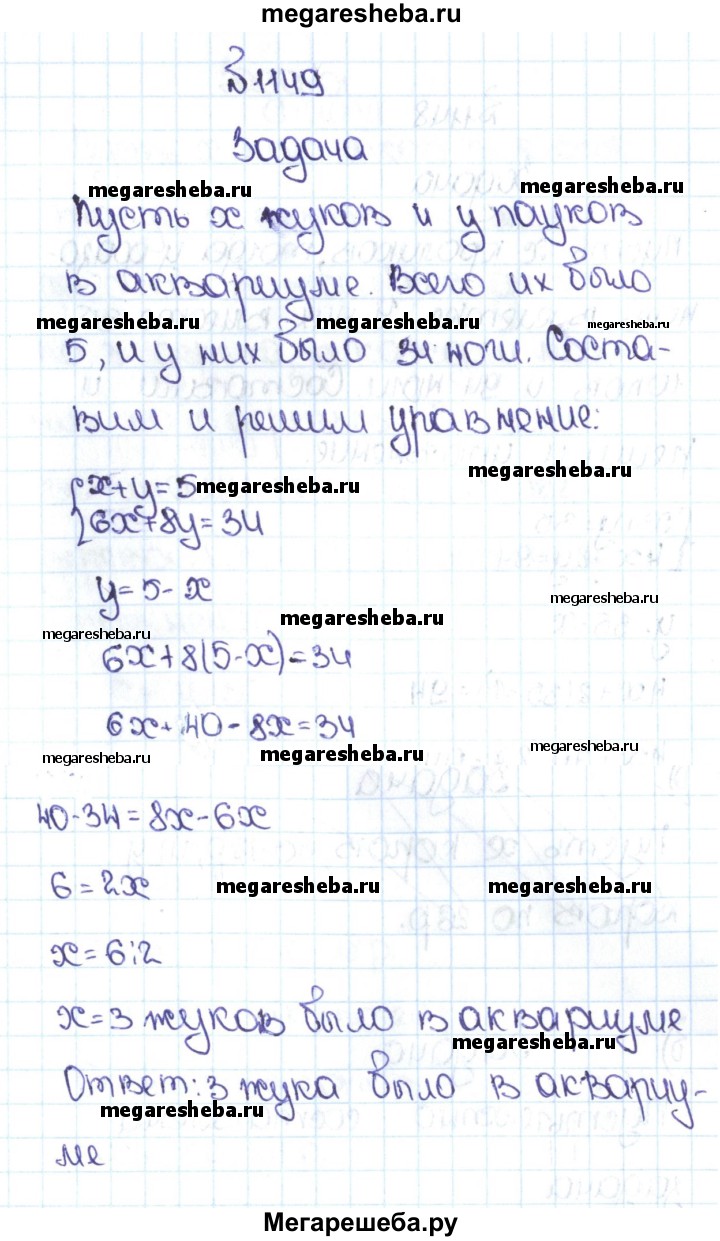 megaresheba.ru
№1149
Задача
megaresheba.ru megaresheba.ru
Пусть x жуков и y пауков
в аквариуме. Всего их было
megaresheba.ru megaresheba.ru megaresheba.ru
5, и у них было 34 ноги. Соста-
вим и решим уравнение:
megaresheba.ru
x+y=5 megaresheba.ru
6x+8y=34
y=5-x
megaresheba.ru
megaresheba.ru
megaresheba.ru
6x+8(5-x)=34
6x+40-8x=34
megaresheba.ru megaresheba.ru megaresheba.ru
40-34=8x-6x
6=2x megaresheba.ru megaresheba.ru
x=6:2
x=3 жуков было в аквариуме
megaresheba.ru
Ответ: 3 жука было в аквариу-
megaresheba.ru
ме
Мегарешеба.ру